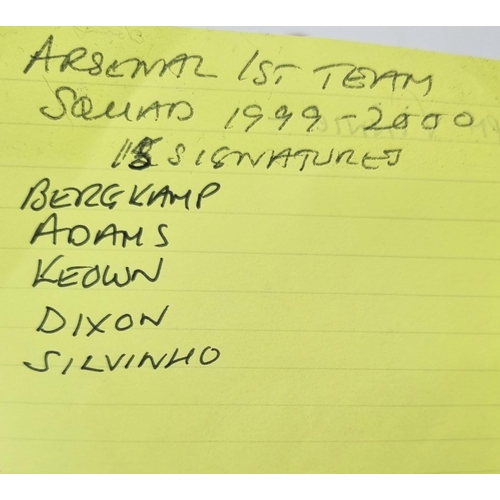 ARSENAL 1ST TEAM
SQUAD 1999-2000
15 SIGNATURES
BERGKAMP
ADAMS
KEOWN
DIXON
SILVINHO